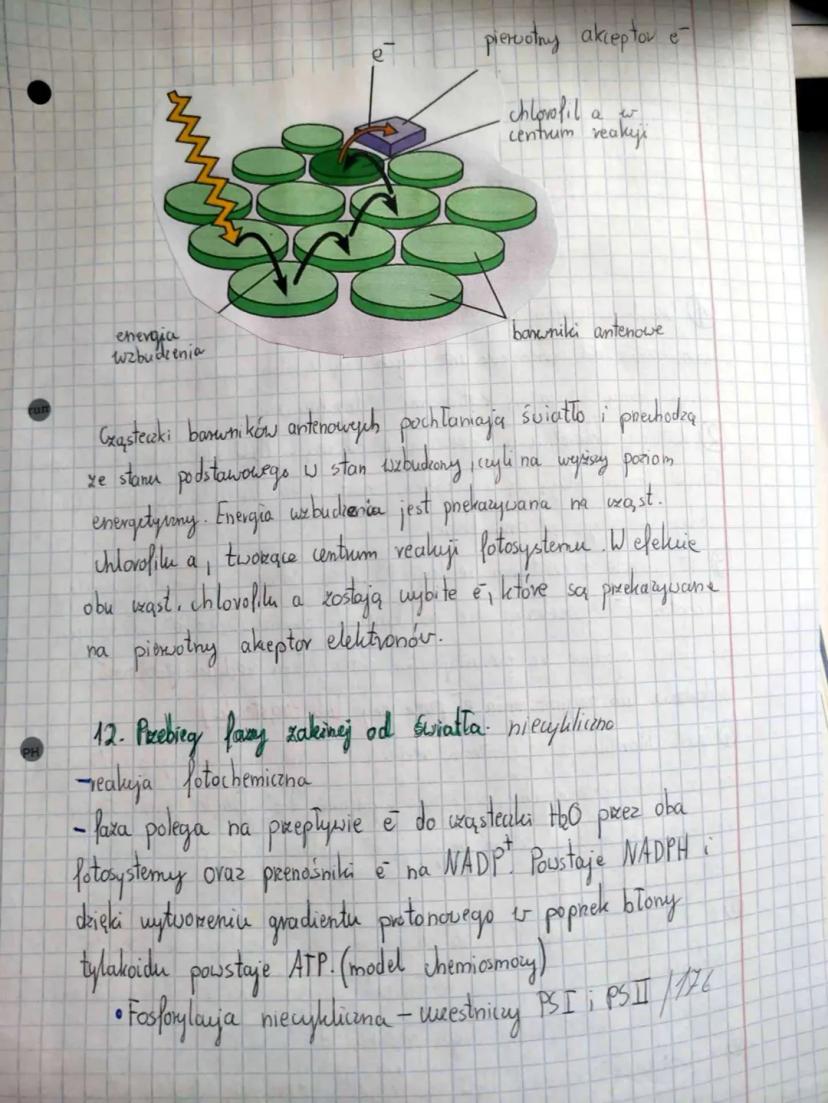 e⁻
pierwotny akceptor e⁻
chlorofil a w
centrum reakcji
energia
wzbudzenia
barwniki antenowe
Cząsteczki barwników antenowych pochłaniają światło i przechodzą
ze stanu podstawowego w stan wzbudzony, czyli na wyższy poziom
energetyczny. Energia wzbudzenia jest przekazywana na cząst.
chlorofilu a, tworzące centrum reakcji fotosystemu. W efekcie
obu cząst. chlorofilu a zostają wybite e⁻, które są przekazywane
na pierwotny akceptor elektronów.
12. Przebieg fazy zależnej od światła. niecykliczna
- reakcja fotochemiczna
- faza polega na przepływie e⁻ do cząsteczki H2O przez oba
fotosystemy oraz przenośniki e⁻ na NADP⁺. Powstaje NADPH i
dzięki wytworzeniu gradientu protonowego w poprzek błony
tylakoidu powstaje ATP. (model chemiosmozy)
• Fosforylacja niecykliczna – uczestniczy PS I i PS II /176
PH